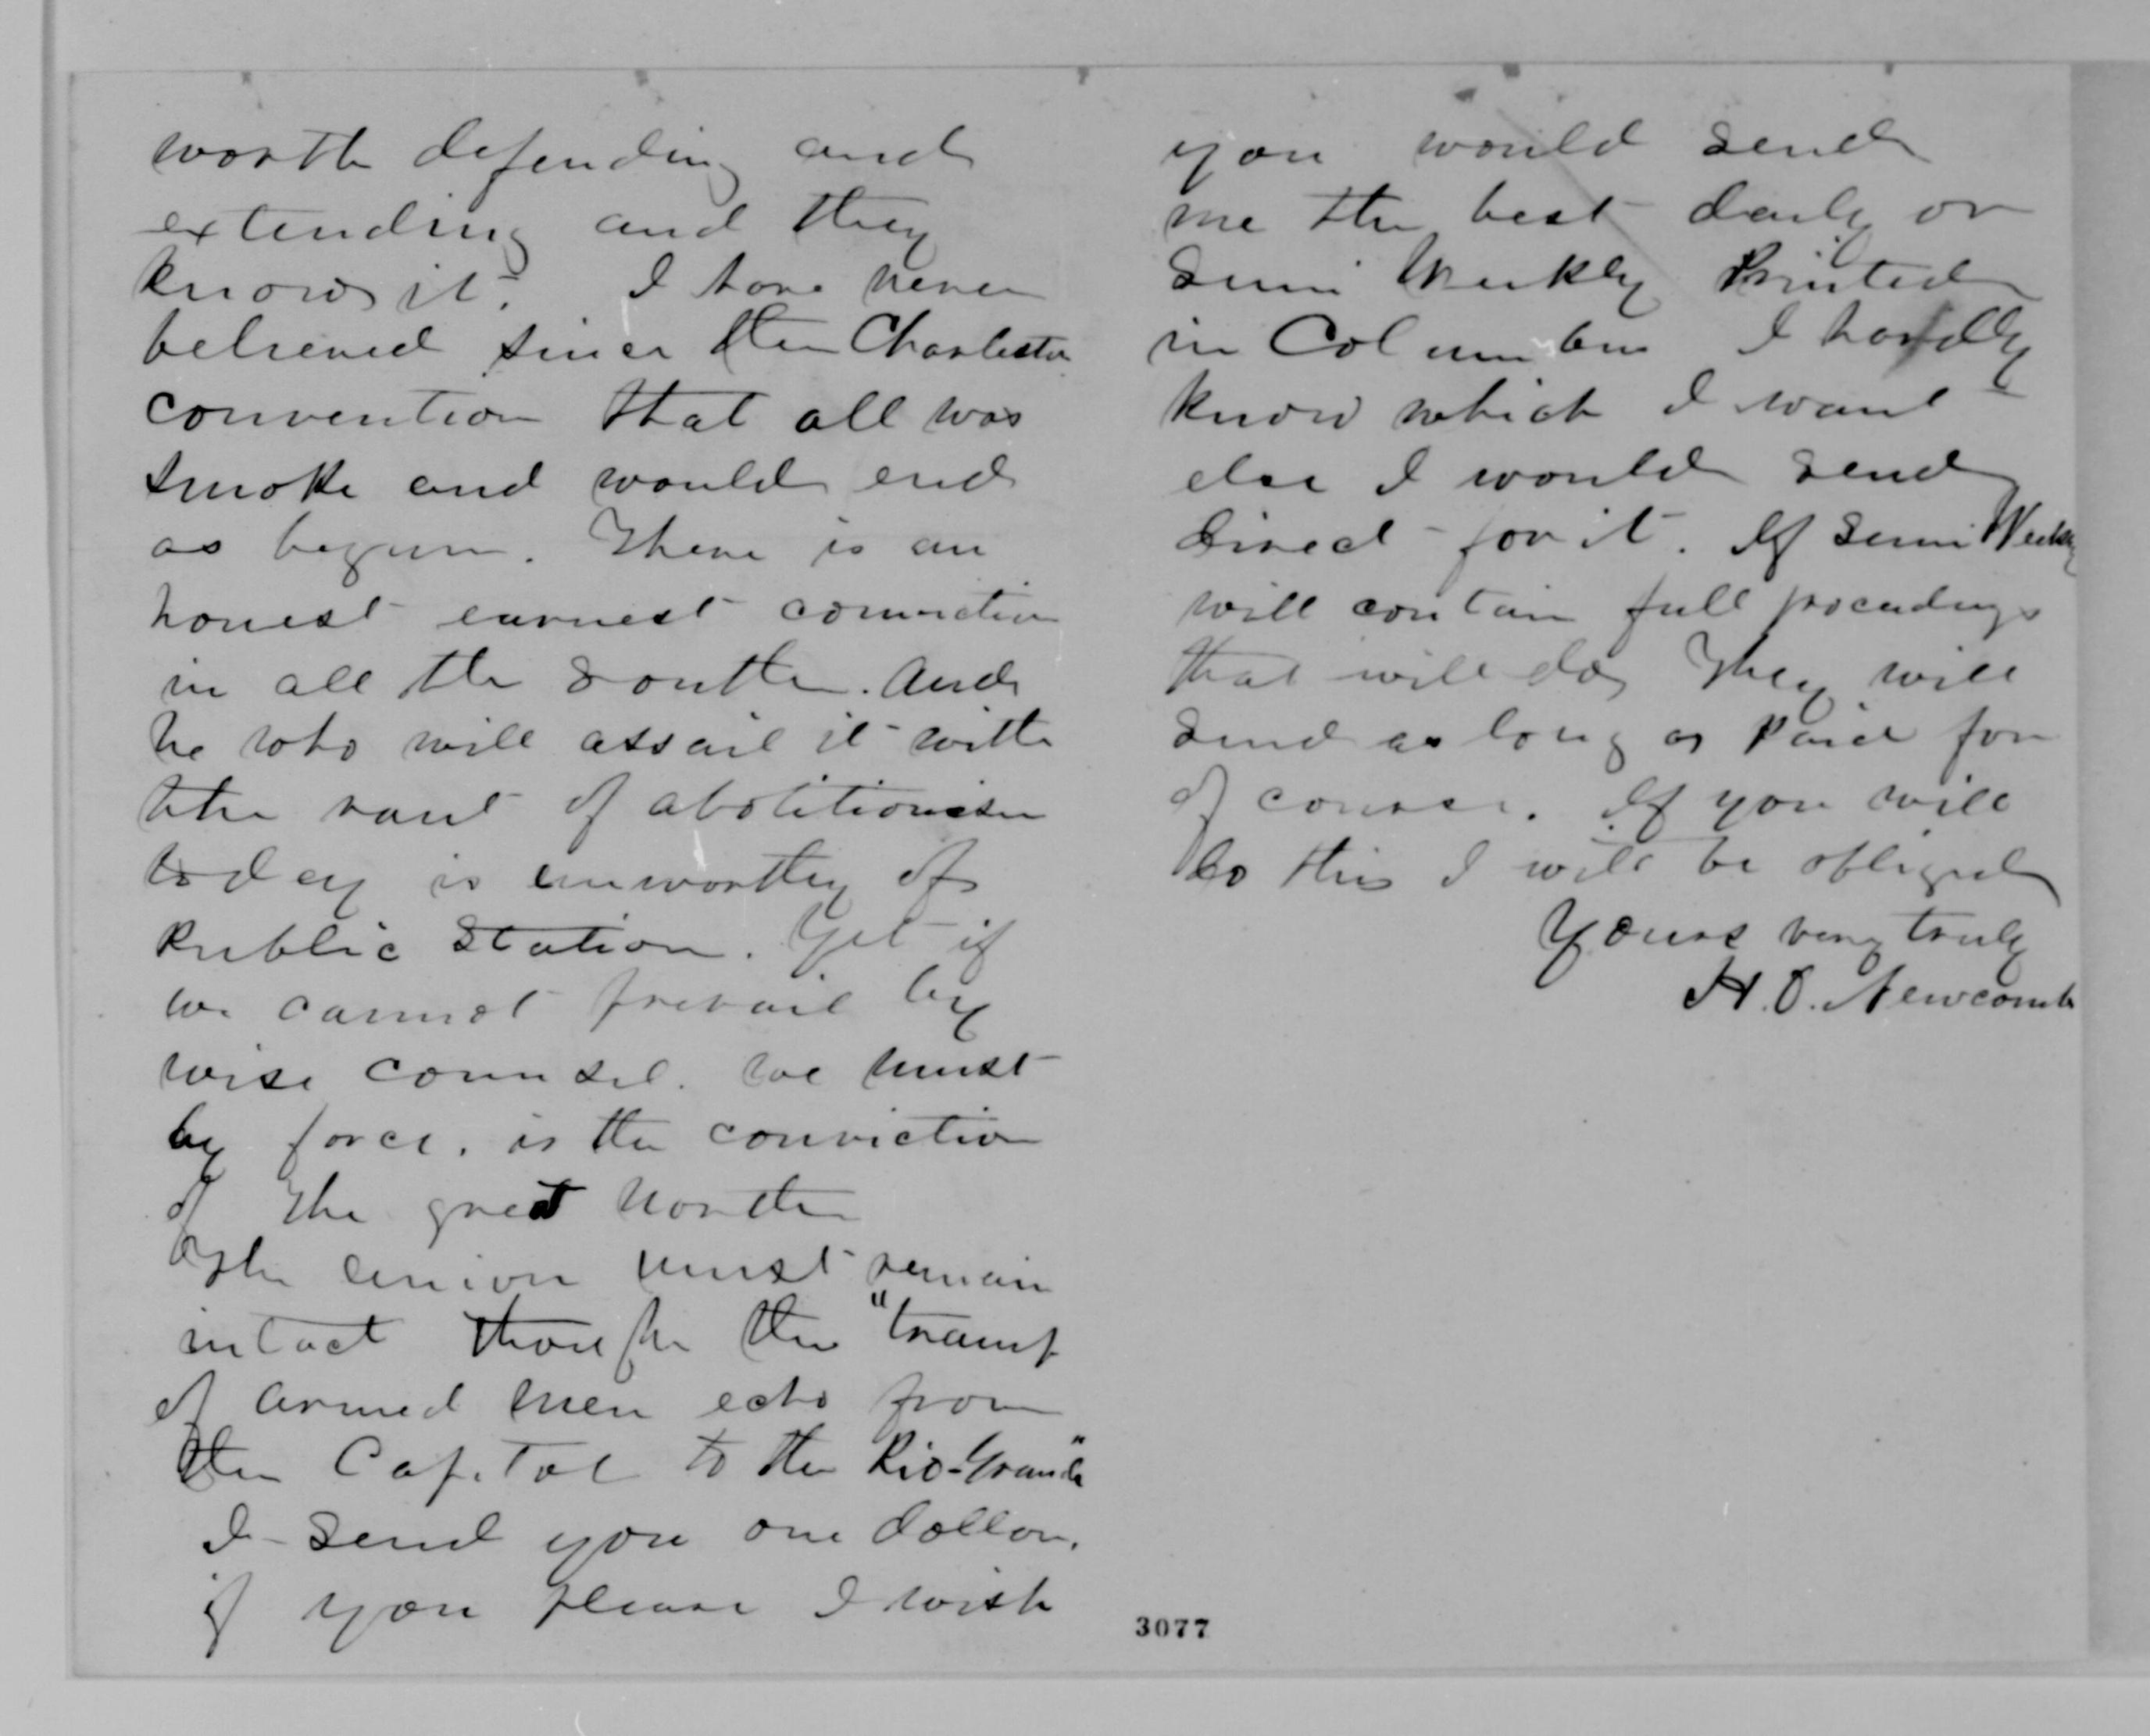 worth defending and
extending and they
know it. I have never
believed since the Charleston
convention that all was
smoke and would end
as begun. There is an
honest earnest conviction
in all the South. And
he who will assail it with
the rant of abolitionism
today is unworthy of
Public Station. Yet if
we cannot prevail by
wise counsel. we must
by force, is the conviction
of the great North
The union must remain
intact though the "tramp
of armed men echo from
the Capitol to the Rio-Grande"
I send you one dollar.
if you please I wish
you would send
me the best daily or
Semi Weekly Printed
in Columbus I hardly
know which I want
else I would send
direct for it. If Semi Weekly
will contain full proceedings
that will do, They will
send as long as paid for
of course. If you will
do this I will be obliged
Yours very truly
H. O. Newcomb
3077